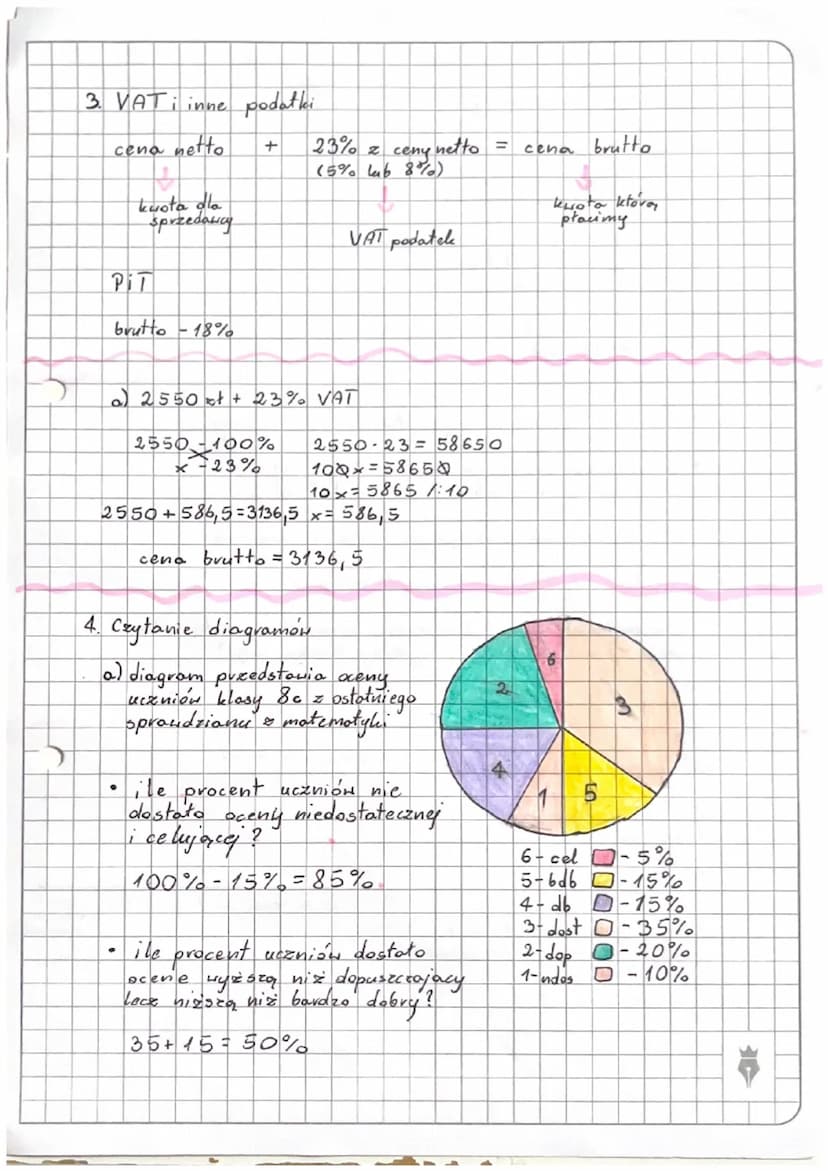 3. VAT i inne podatki
cena netto + 23% z ceny netto = cena brutto
(5% lub 8%)
kwota dla
sprzedawcy
kwota którą
płacimy
VAT podatek
PiT
brutto - 18%
a) 2550 zł + 23% VAT
2550 - 100% 2550 · 23 = 58650
x - 23% 100x = 58650
10x = 5865 /:10
2550 + 586,5 = 3136,5 x = 586,5
cena brutto = 3136,5
4. Czytanie diagramów
a) diagram przedstawia oceny
uczniów klasy 8c z ostatniego
sprawdzianu z matematyki
6
2
3
4
1
5
• ile procent uczniów nie
dostało oceny niedostatecznej
i celującej?
100% - 15% = 85%
6 - cel - 5%
5 - bdb - 15%
4 - db - 15%
3 - dost - 35%
2 - dop - 20%
1 - ndos - 10%
• ile procent uczniów dostało
ocenę wyższą niż dopuszczający
lecz niższą niż bardzo dobry?
35 + 15 = 50%